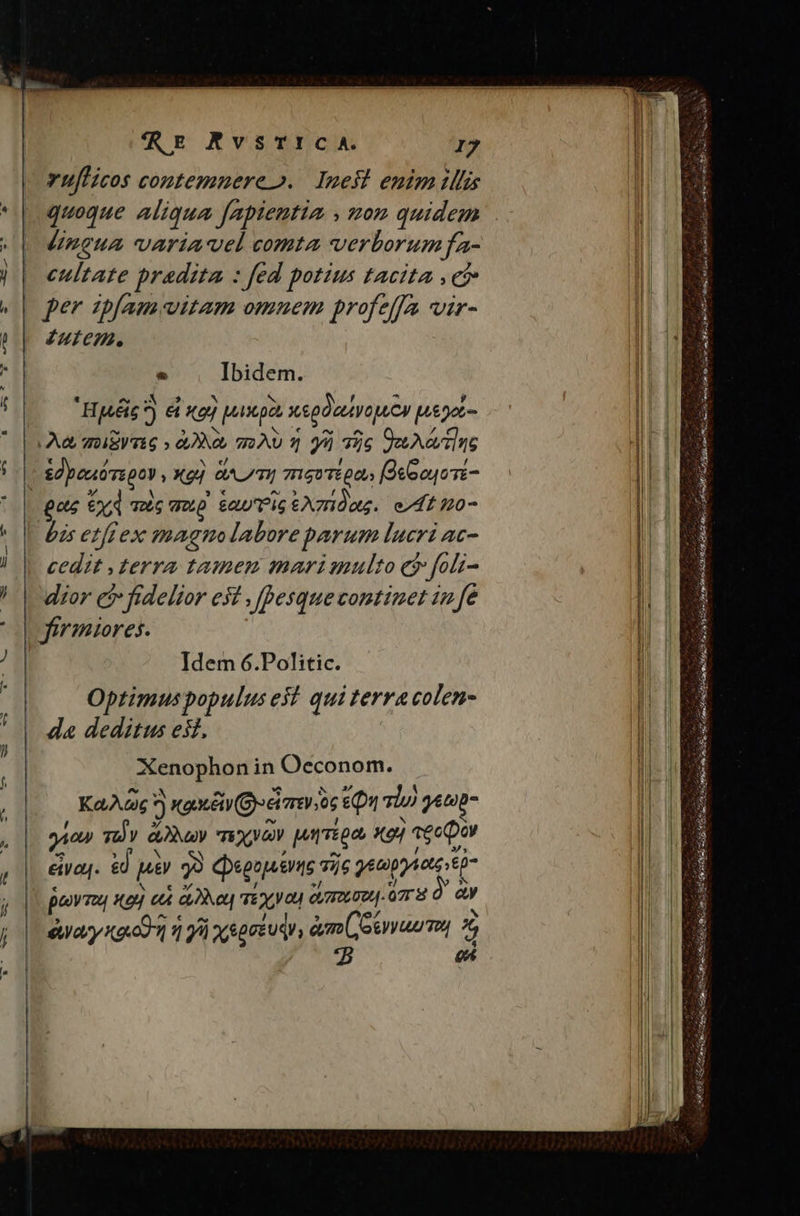 RE RVSTICA. 17
rusticos contemnere. Inest enim illis
quoque aliqua sapientia, non quidem
lingua varia vel comta verborum fa-
cultate prædita: sed potius tacita, &
per ipsam vitam omnem professa vir-
tutem.
Ibidem.
Ἡμεῖς ἢ εἰ καὶ μικρὰ κερδαίνομεν μεγά-
λα ποιοῦντες, ἀλλὰ πολὺ ἡ γῆ τῆς θαλάττης
ἑδραιότερον, καὶ αὐτὴ πιστότερα, βεβαιοτέ-
ρας ἔχει τὰς παρ' ἑαυτῆς ἐλπίδας. At no-
bis etsi ex magno labore parum lucri ac-
cedit, terra tamen mari multo & soli-
dior & fidelior est, spesque continet in se
firmiores.
Idem 6. Politic.
Optimus populus est qui terræ colen-
dæ deditus est.
Xenophon in Oeconom.
Καλῶς ἢ κακεῖνος εἶπεν, ὃς ἔφη τὴν γεωρ-
γίαν τῶν ἄλλων τεχνῶν μητέρα καὶ τροφὸν
εἶναι. εὖ μὲν γὸ φερομένης τῆς γεωργίας, ἔρ-
ρωνται καὶ αἱ ἄλλαι τέχναι ἅπασαι. ὅπου δ' ἂν
ἀναγκασθῇ ἡ γῆ χερσεύειν, ἀποσβέννυνται καὶ
B αἱ